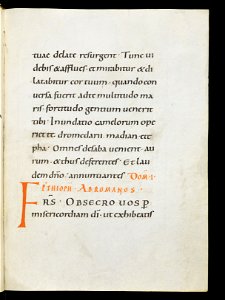 tuae delate resurgent · Tunc ui
debis & afflues · et mirabitur & di
latabitur cor tuum · quando con
uersa fuerit ad te multitudo ma
ris · fortitudo gentium uenerit
tibi · Inundatio camelorum ope
riet te · dromedarii madian et e
pha · Omnes de saba uenient · au
rum & thus deferentes · Et lau
dem dño adnuntiantes DOM · I
P̄ THEOPH · AD ROMANOS ·
FRS · OBSECRO UOS P
misericordiam di · ut exhibeatis